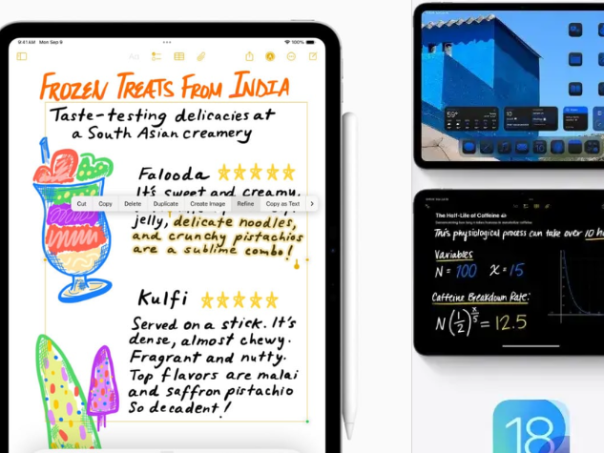 9:41 AM Mon Sep 9
100%
FROZEN TREATS FROM INDIA
Taste-testing delicacies at
a South Asian creamery
Falooda
It's sweet and creamy.
Cut Copy Delete Duplicate Create Image Refine Copy as Text
jelly, delicate noodles,
and crunchy pistachios
are a sublime combo!
Kulfi
Served on a stick. It's
dense, almost chewy.
Fragrant and nutty.
Top flavors are malai
and saffron pistachio
So decadent!
The Half-Life of Caffeine
This physiological process can take over 10 h
Variables
N = 100 x = 15
Caffeine Breakdown Rate:
N(1/2)^x/5 = 12.5
18